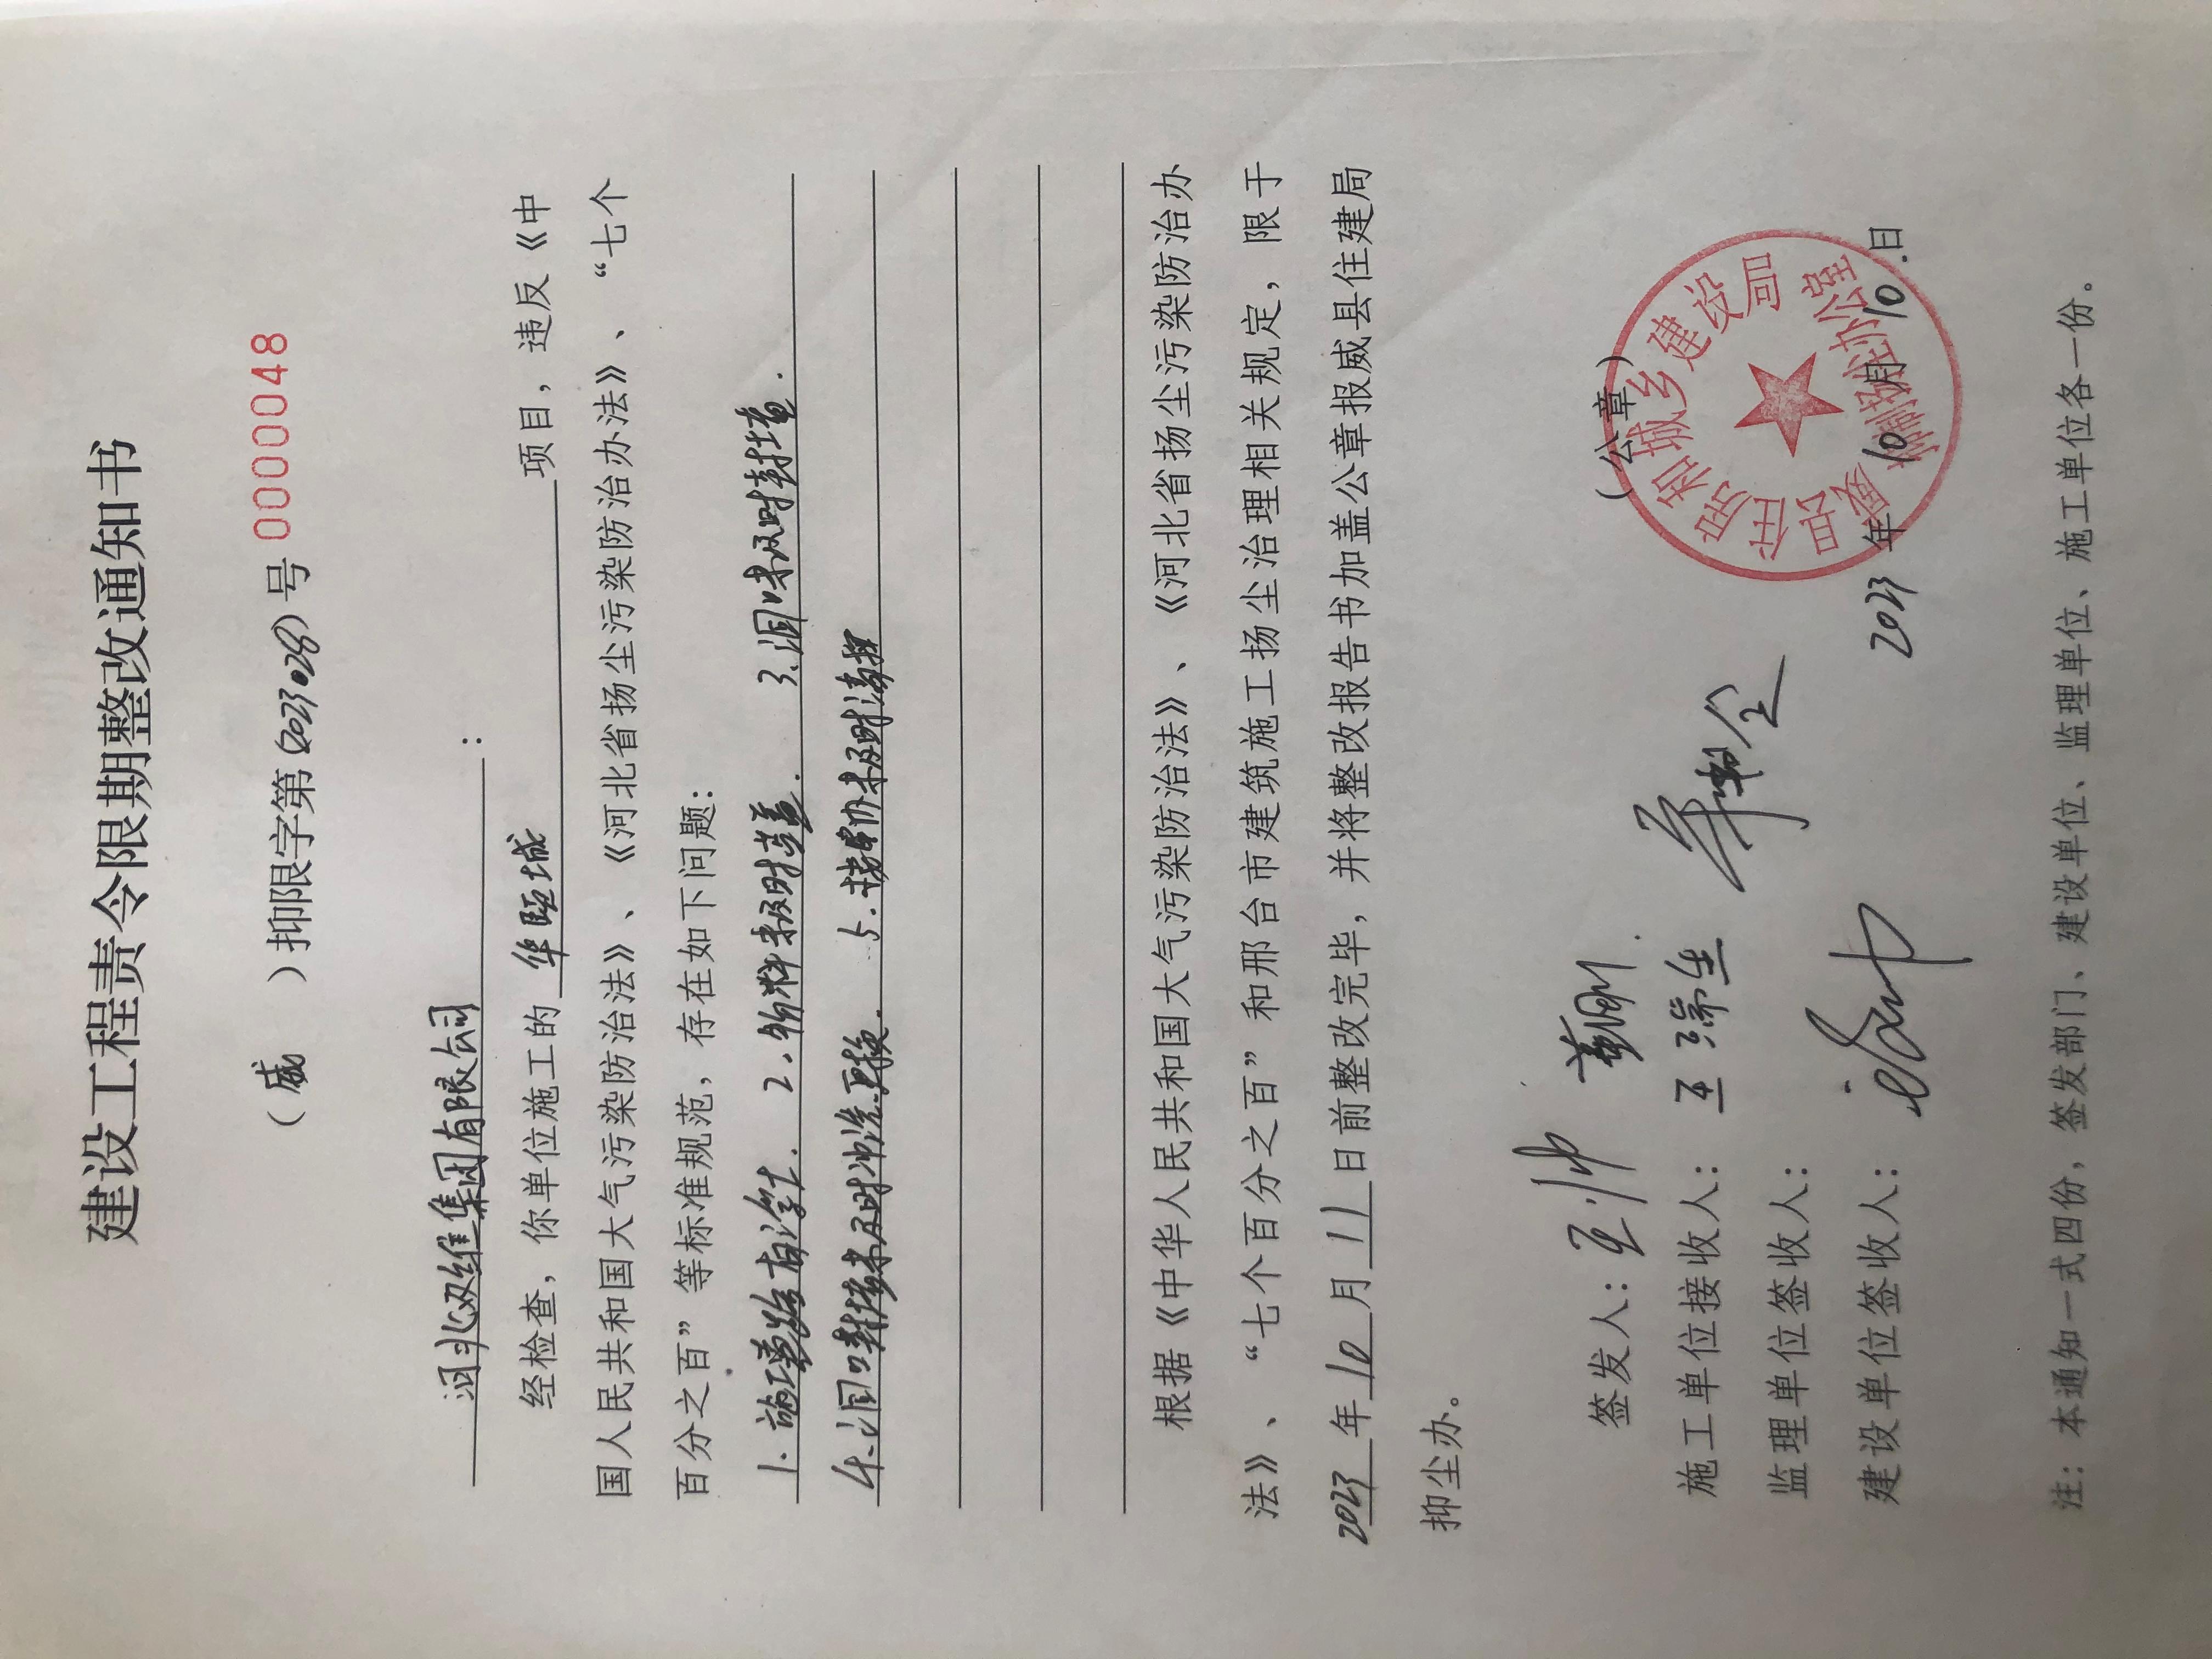 建设工程责令限期整改通知书
（威　）抑限字第(2023028)号 0000048
河北双维集团有限公司：
经检查，你单位施工的华熙城项目，违反《中
国人民共和国大气污染防治法》、《河北省扬尘污染防治办法》、“七个
百分之百”等标准规范，存在如下问题：
1. 施工道路有浮土. 2. 物料未及时苫盖. 3. 围 未及时封堵.
4. 围 未及时冲洗更换. 5. 未及时清扫
根据《中华人民共和国大气污染防治法》、《河北省扬尘污染防治办
法》、“七个百分之百”和邢台市建筑施工扬尘治理相关规定，限于
2023年10月11日前整改完毕，并将整改报告书加盖公章报威县住建局
抑尘办。
签发人：王帅 （公章）
施工单位接收人：王瑞生
监理单位签收人：
建设单位签收人： 2023年10月10日
威县住房和城乡建设局
抑尘办公室
注：本通知一式四份，签发部门、建设单位、监理单位、施工单位各一份。